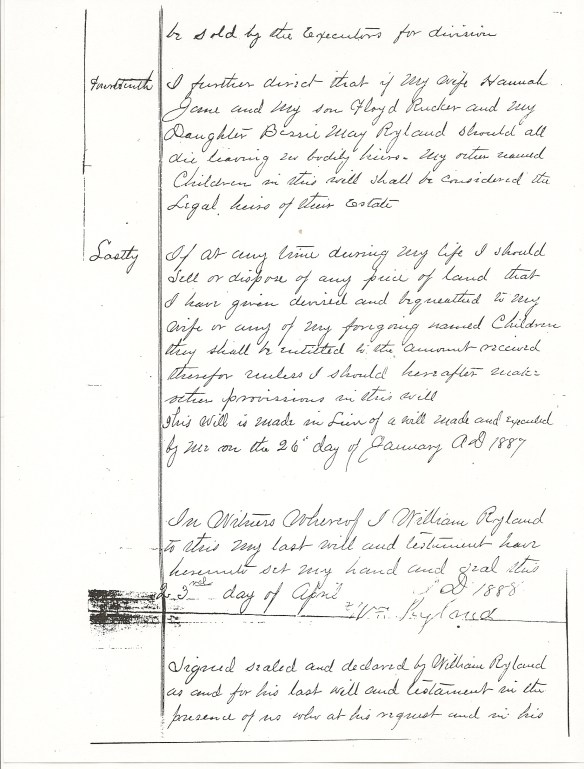 be sold by the Executors for division
Fourteenth I further direct that if My wife Hannah
Jane and My son Floyd Rucker and My
Daughter Bessie May Ryland should all
die leaving no bodily heirs. My other named
Children in this will shall be considered the
Legal heirs of their Estate
Lastly If at any time during My life I should
Sell or dispose of any piece of land that
I have given devised and bequeathed to My
wife or any of My foregoing named Children
they shall be entitled to the amount received
therefor unless I should hereafter make
other provisions in this will
This Will is made in Lieu of a will made and executed
by Me on the 26" day of January AD 1887
In Witness Whereof I William Ryland
to this my last will and testament have
hereunto set my hand and seal this
23rd day of April AD 1888
Wm Ryland
Signed sealed and declared by William Ryland
as and for his last will and testament in the
presence of us who at his request and in his